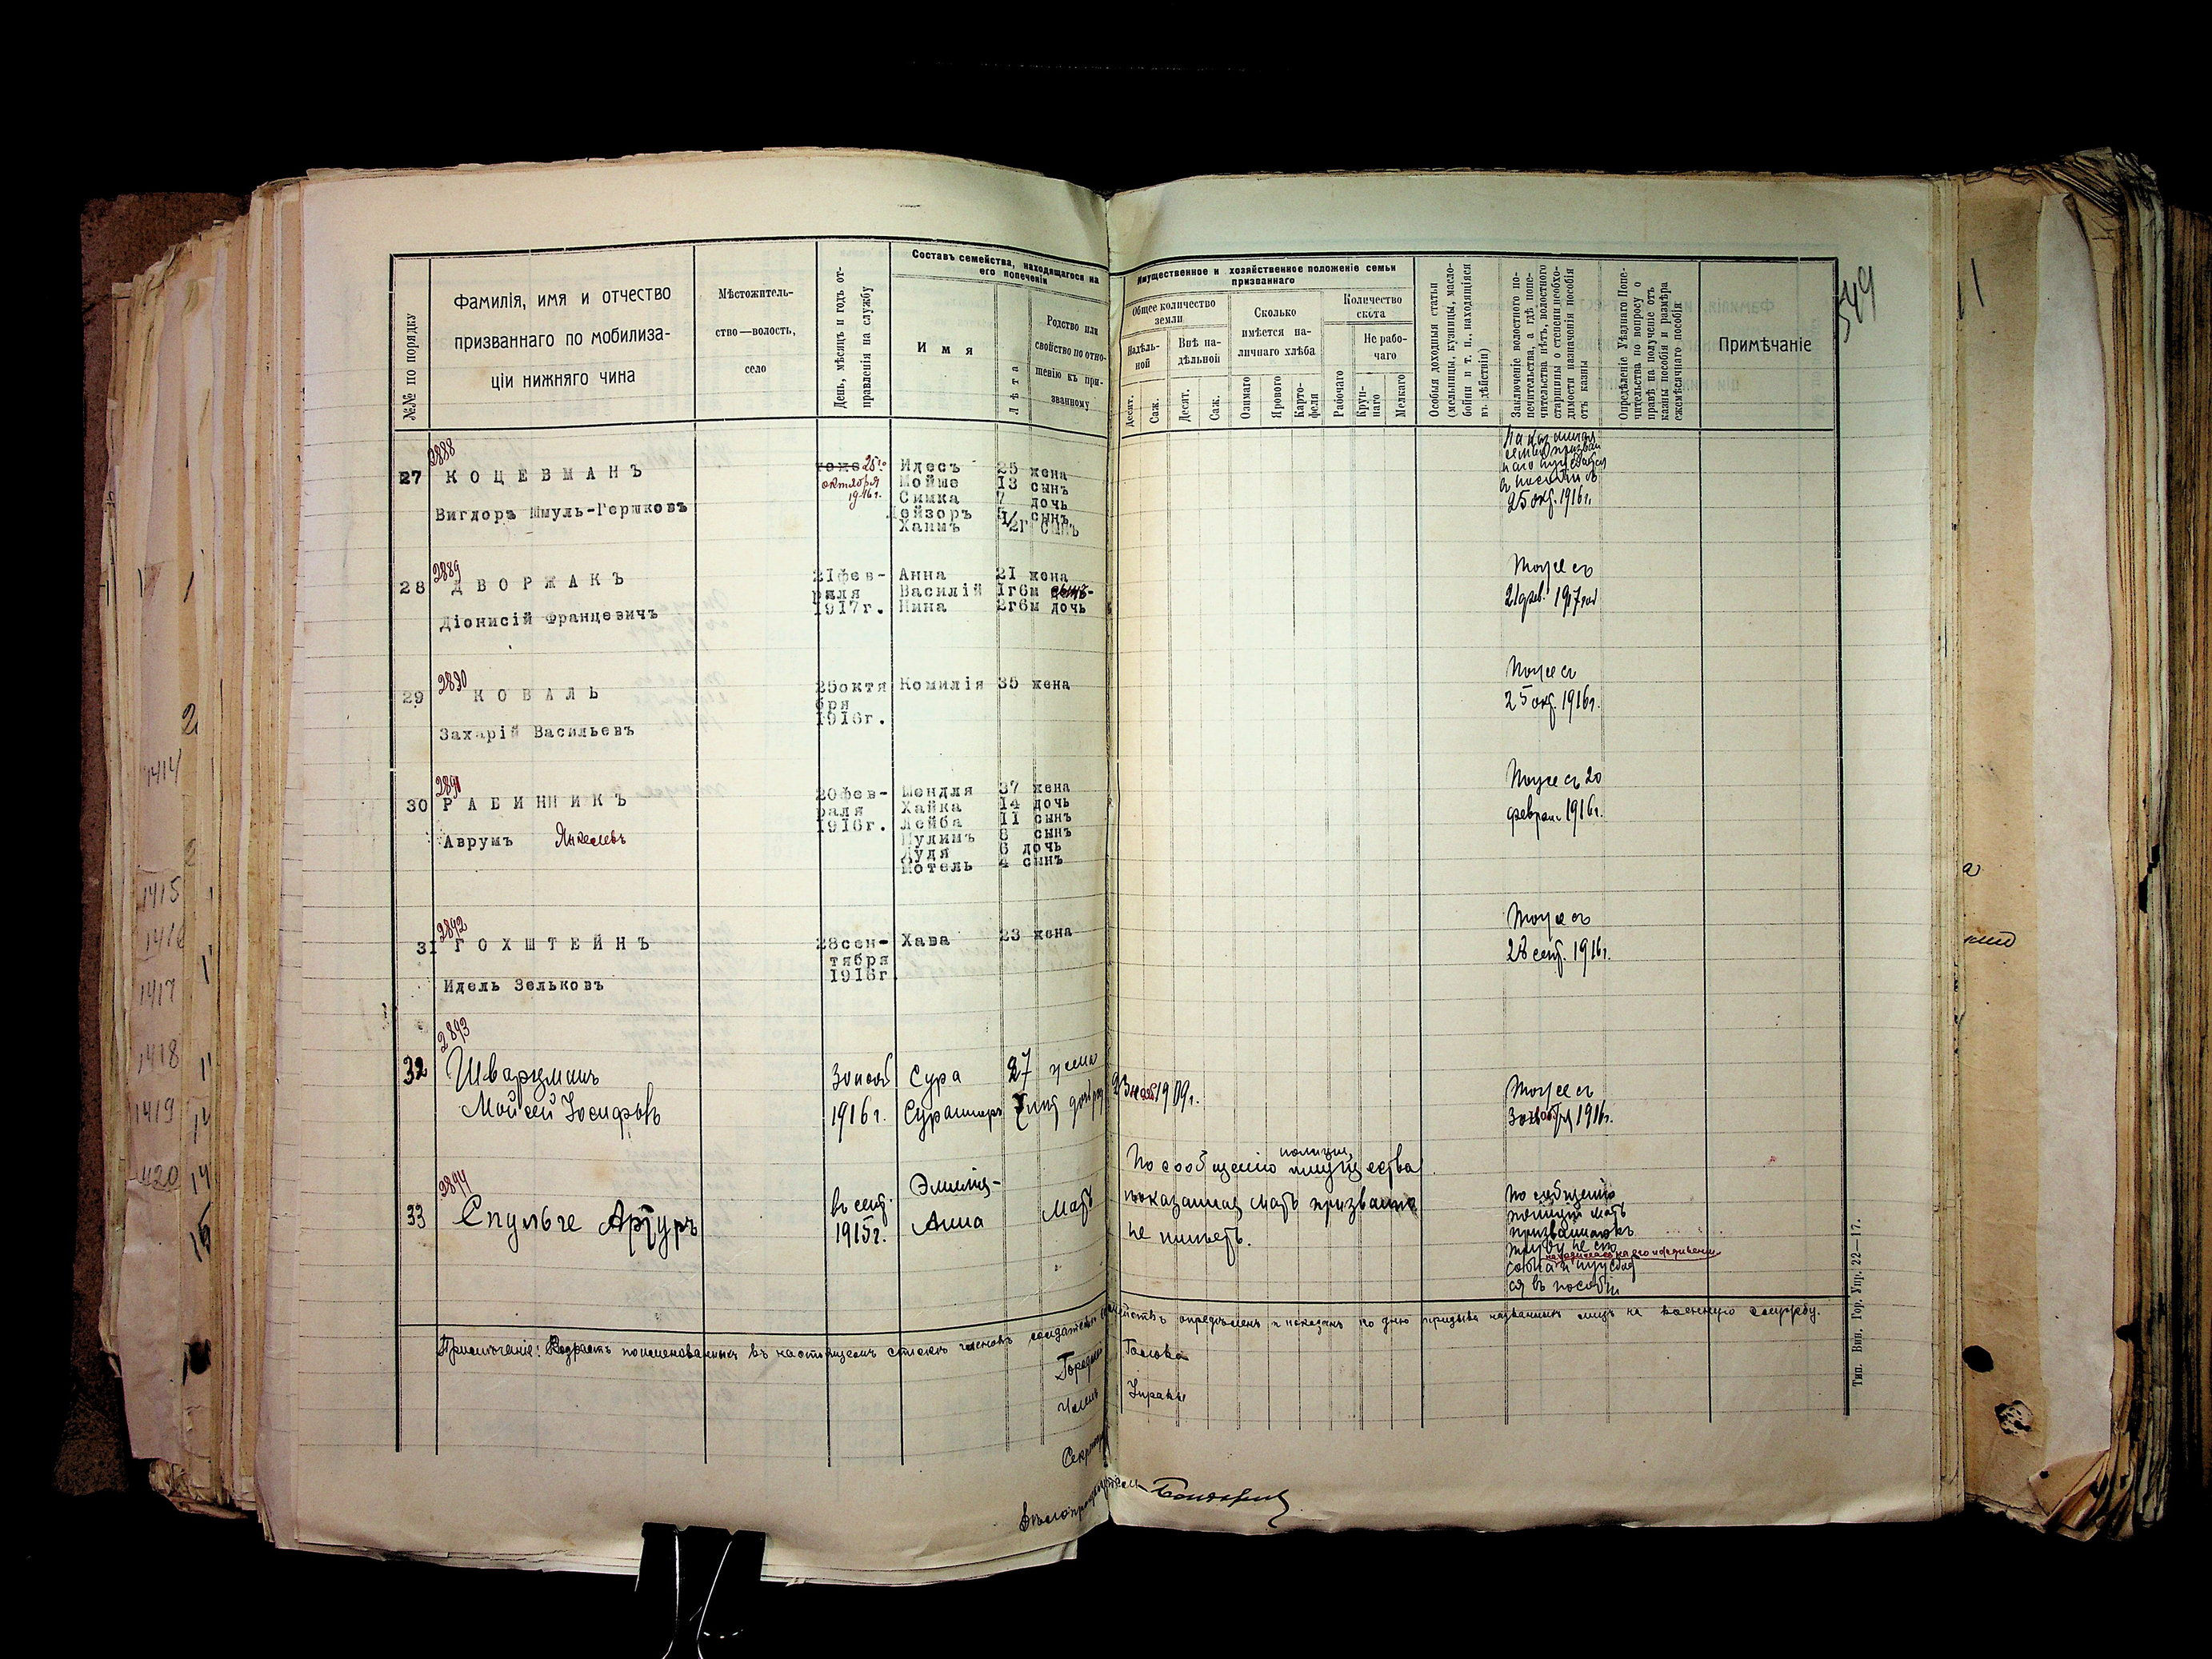 549
№№ по порядку
Фамилія, имя и отчество
призваннаго по мобилиза-
ціи нижняго чина
Мѣстожитель-
ство—волость,
село
День, мѣсяцъ и годъ от-
правленія на службу
Составъ семейства, находящагося на
его попеченіи
Имя
Лѣта
Родство или
свойство по отно-
шенію къ при-
званному
Имущественное и хозяйственное положеніе семьи
призваннаго
Общее количество
земли
Надѣль-
ной
Внѣ на-
дѣльной
Десят.
Саж.
Десят.
Саж.
Сколько
имѣется на-
личнаго хлѣба
Озимаго
Ярового
Карто-
феля
Количество
скота
Рабочаго
Не рабо-
чаго
Круп-
наго
Мелкаго
Особыя доходныя статьи
(мельницы, кузницы, масло-
бойни и т. п., находящіяся
въ дѣйствіи)
Заключеніе волостного по-
печительства, а гдѣ попе-
чительства нѣтъ, волостного
старшины о степени необхо-
димости назначенія пособія
отъ казны
Опредѣленіе Уѣзднаго Попе-
чительства по вопросу о
правѣ на полученіе отъ
казны пособія и размѣра
ежемѣсячнаго пособія
Примѣчаніе
2888
27 КОЦЕВМАНЪ
Вигдоръ Шмуль-Гершковъ
тоже 25го
октября
1916г.
Идесъ 25 жена
Мойше 13 сынъ
Симка 7 дочь
Лейзоръ 5 сынъ
Хаимъ 1/2г сынъ
семья
25 окт. 1916г.
2889
28 ДВОРЖАКЪ
Діонисій Францевичъ
21фев-
раля
1917г.
Анна 21 жена
Василій 1г6м сынъ
Нина 2г6м дочь
Тоже съ
21 фев. 1917 год
2890
29 КОВАЛЬ
Захарій Васильевъ
25октя
бря
1916г.
Комилія 35 жена
Тоже съ
25 окт. 1916г.
2891
30 РАБИННИКЪ
Аврумъ Янкелевъ
20фев-
раля
1916г.
Шендля 37 жена
Хайка 14 дочь
Лейба 11 сынъ
Пулимъ 8 сынъ
Дудя 6 дочь
Мотель 4 сынъ
Тоже съ 20
феврал. 1916г.
2892
31 ГОХШТЕЙНЪ
Идель Зельковъ
28сен-
тября
1916г.
Хава 23 жена
Тоже съ
28 сент. 1916г.
2893
32 Шварцманъ
Мойсей Іосифовъ
3 нояб
1916г.
Сура 27 жена
1909г.
Тоже съ
3 ноября 1916г.
2894
33 Спульге Артуръ
въ сент.
1915г.
Эмилія-
Анна Мать
По сообщенію полиціи имущества
показанная мать призваннаго
не имѣетъ.
По сообщенію
полиціи мать
призваннаго къ
труду не спо
находилась на его иждивеніи
собна и нуждает
ся въ пособіи
Примѣчаніе: Возрастъ поименованныхъ въ настоящемъ спискѣ членовъ солдатскихъ семействъ опредѣленъ и показанъ по дню призыва названныхъ лицъ на военную службу.
Городской Голова
Членъ Управы
Секретарь
Дѣлопроизводитель
Тип. Вин. Гор. Упр. 22—17.
1414
1415
1416
1417
1418
1419
1420